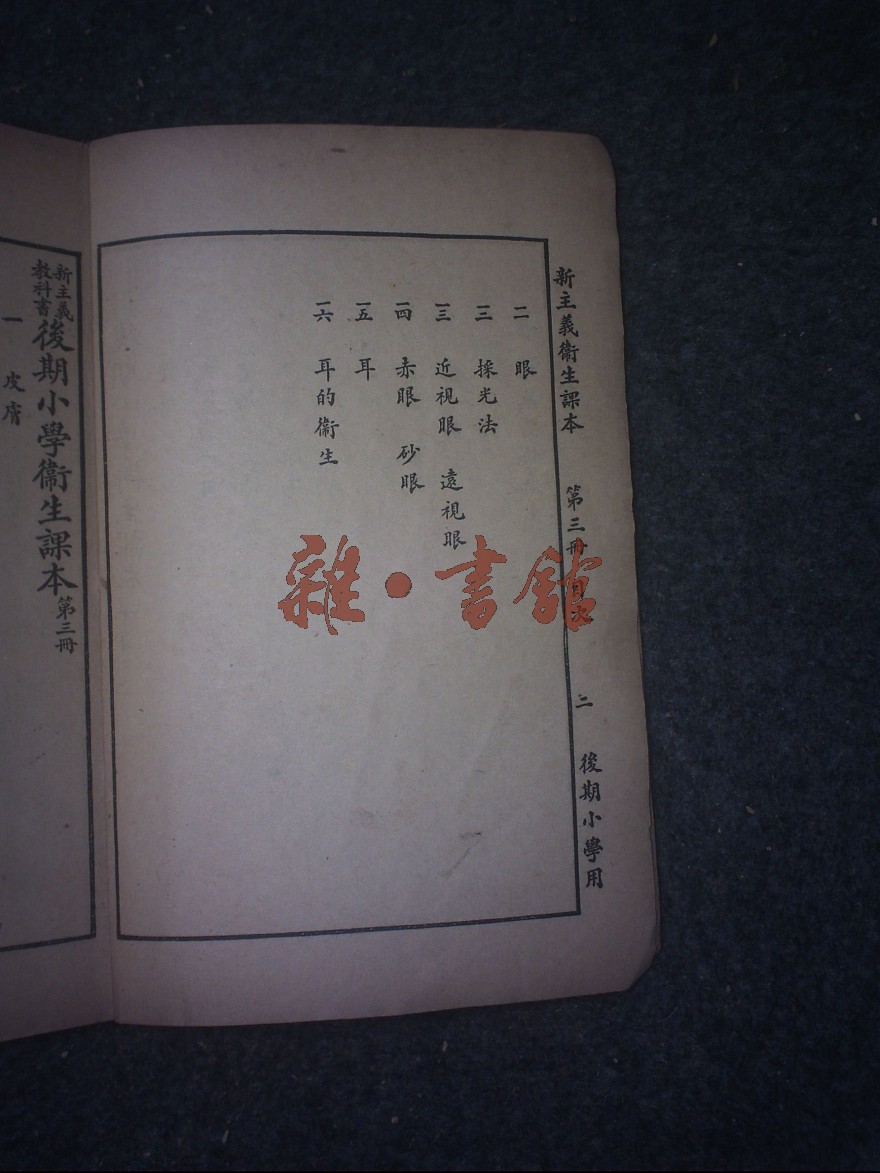 新主義衞生課本 第三冊 目次 二 後期小學用
一一 眼
一二 採光法
一三 近視眼 遠視眼
一四 赤眼 砂眼
一五 耳
一六 耳的衞生
新主義教科書 後期小學衞生課本 第三冊
一 皮膚
雜·書館